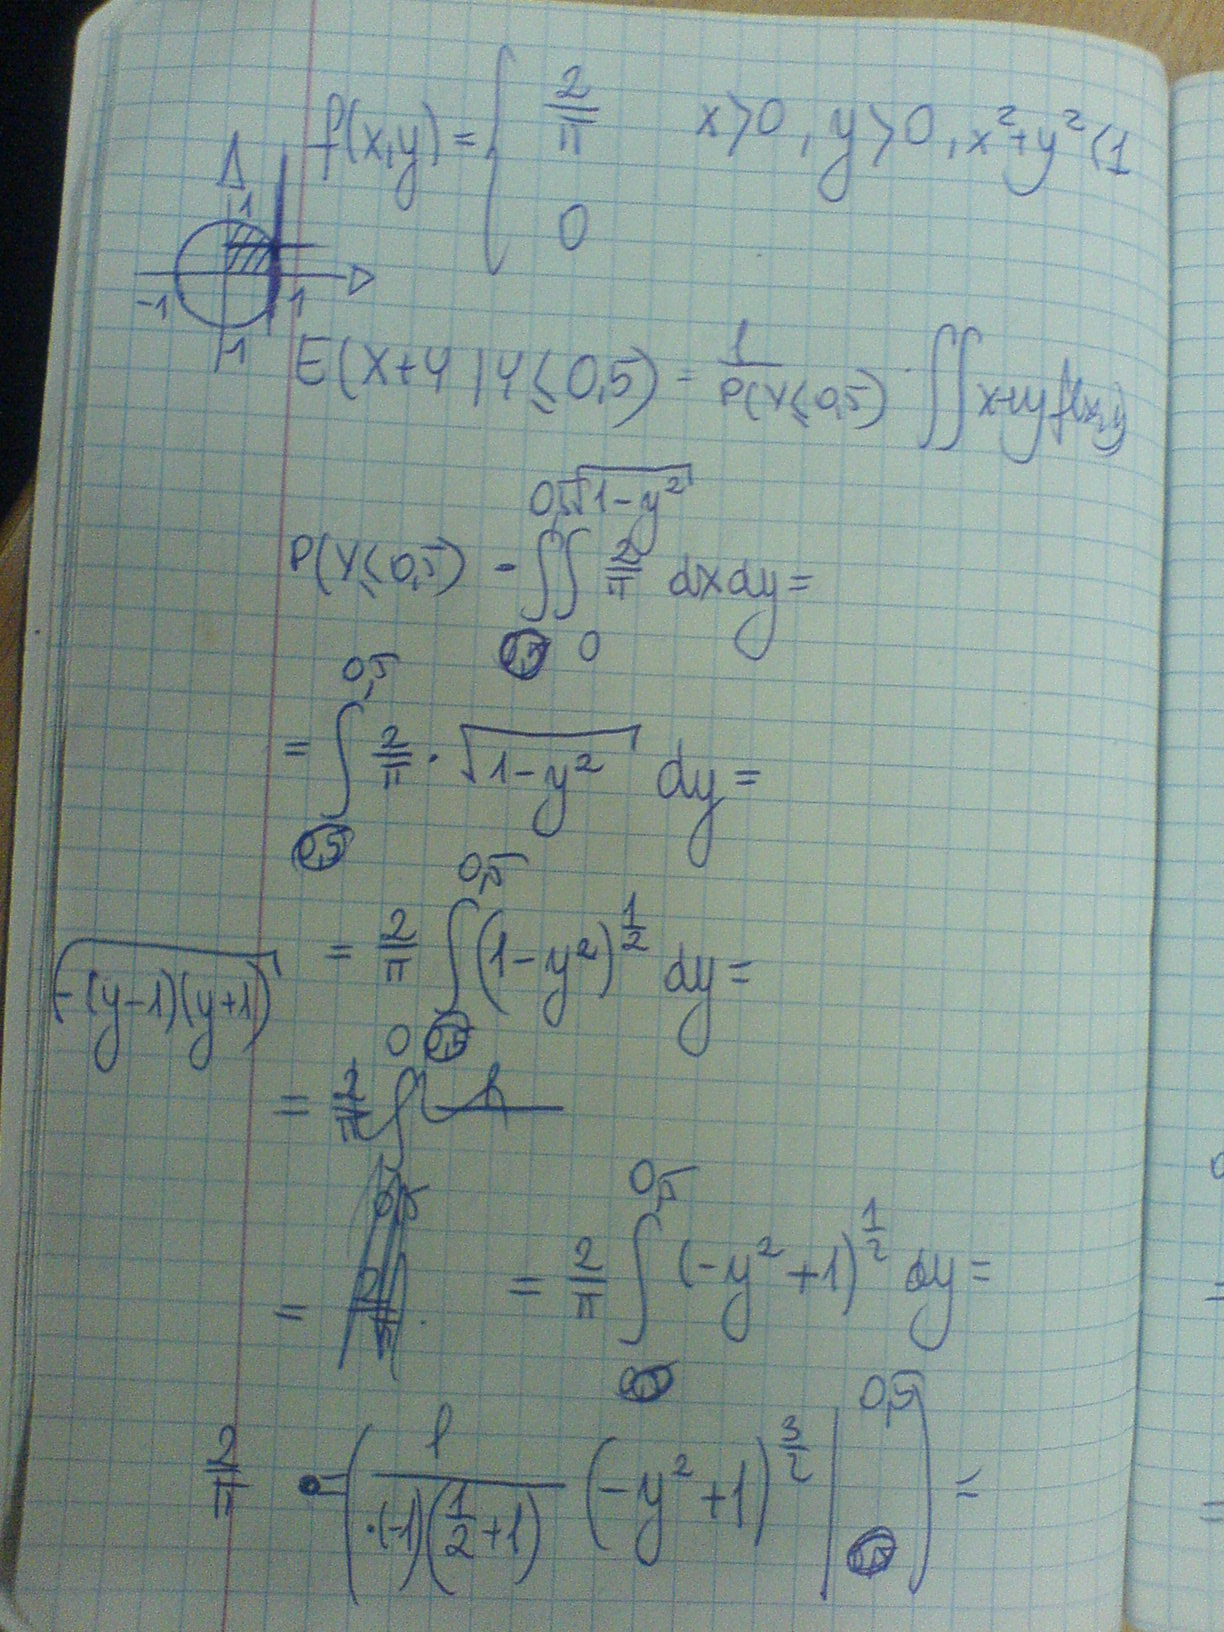 f(x,y) = { 2/π x>0, y>0, x²+y²<1
0
1
-1 1
-1
E(X+Y | Y⩽0,5) = 1/P(Y⩽0,5) · ∬ x+y f(x,y)
P(Y⩽0,5) = ∫^0,5 ∫_0^√(1-y²) 2/π dxdy =
= ∫^0,5 2/π · √(1-y²) dy =
= 2/π ∫_0^0,5 (1-y²)^1/2 dy =
√(-(y-1)(y+1))
= 2/π ∫
= = 2/π ∫^0,5 (-y²+1)^1/2 dy =
2/π · (1/(·(-1)(1/2+1)) (-y²+1)^3/2 |^0,5) =